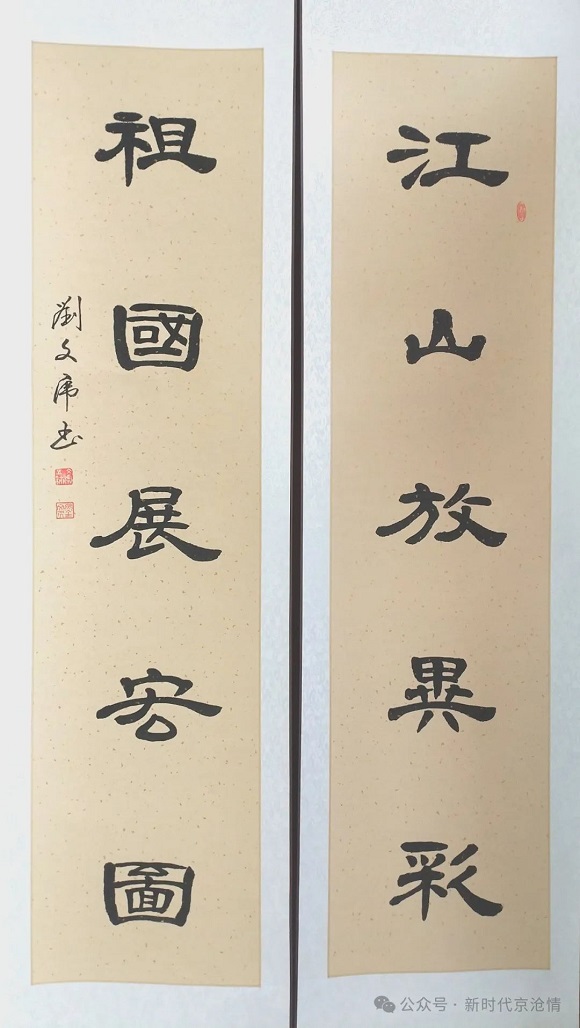 江山放異彩
祖國展宏圖
劉文席书
公众号 · 新时代京沧情